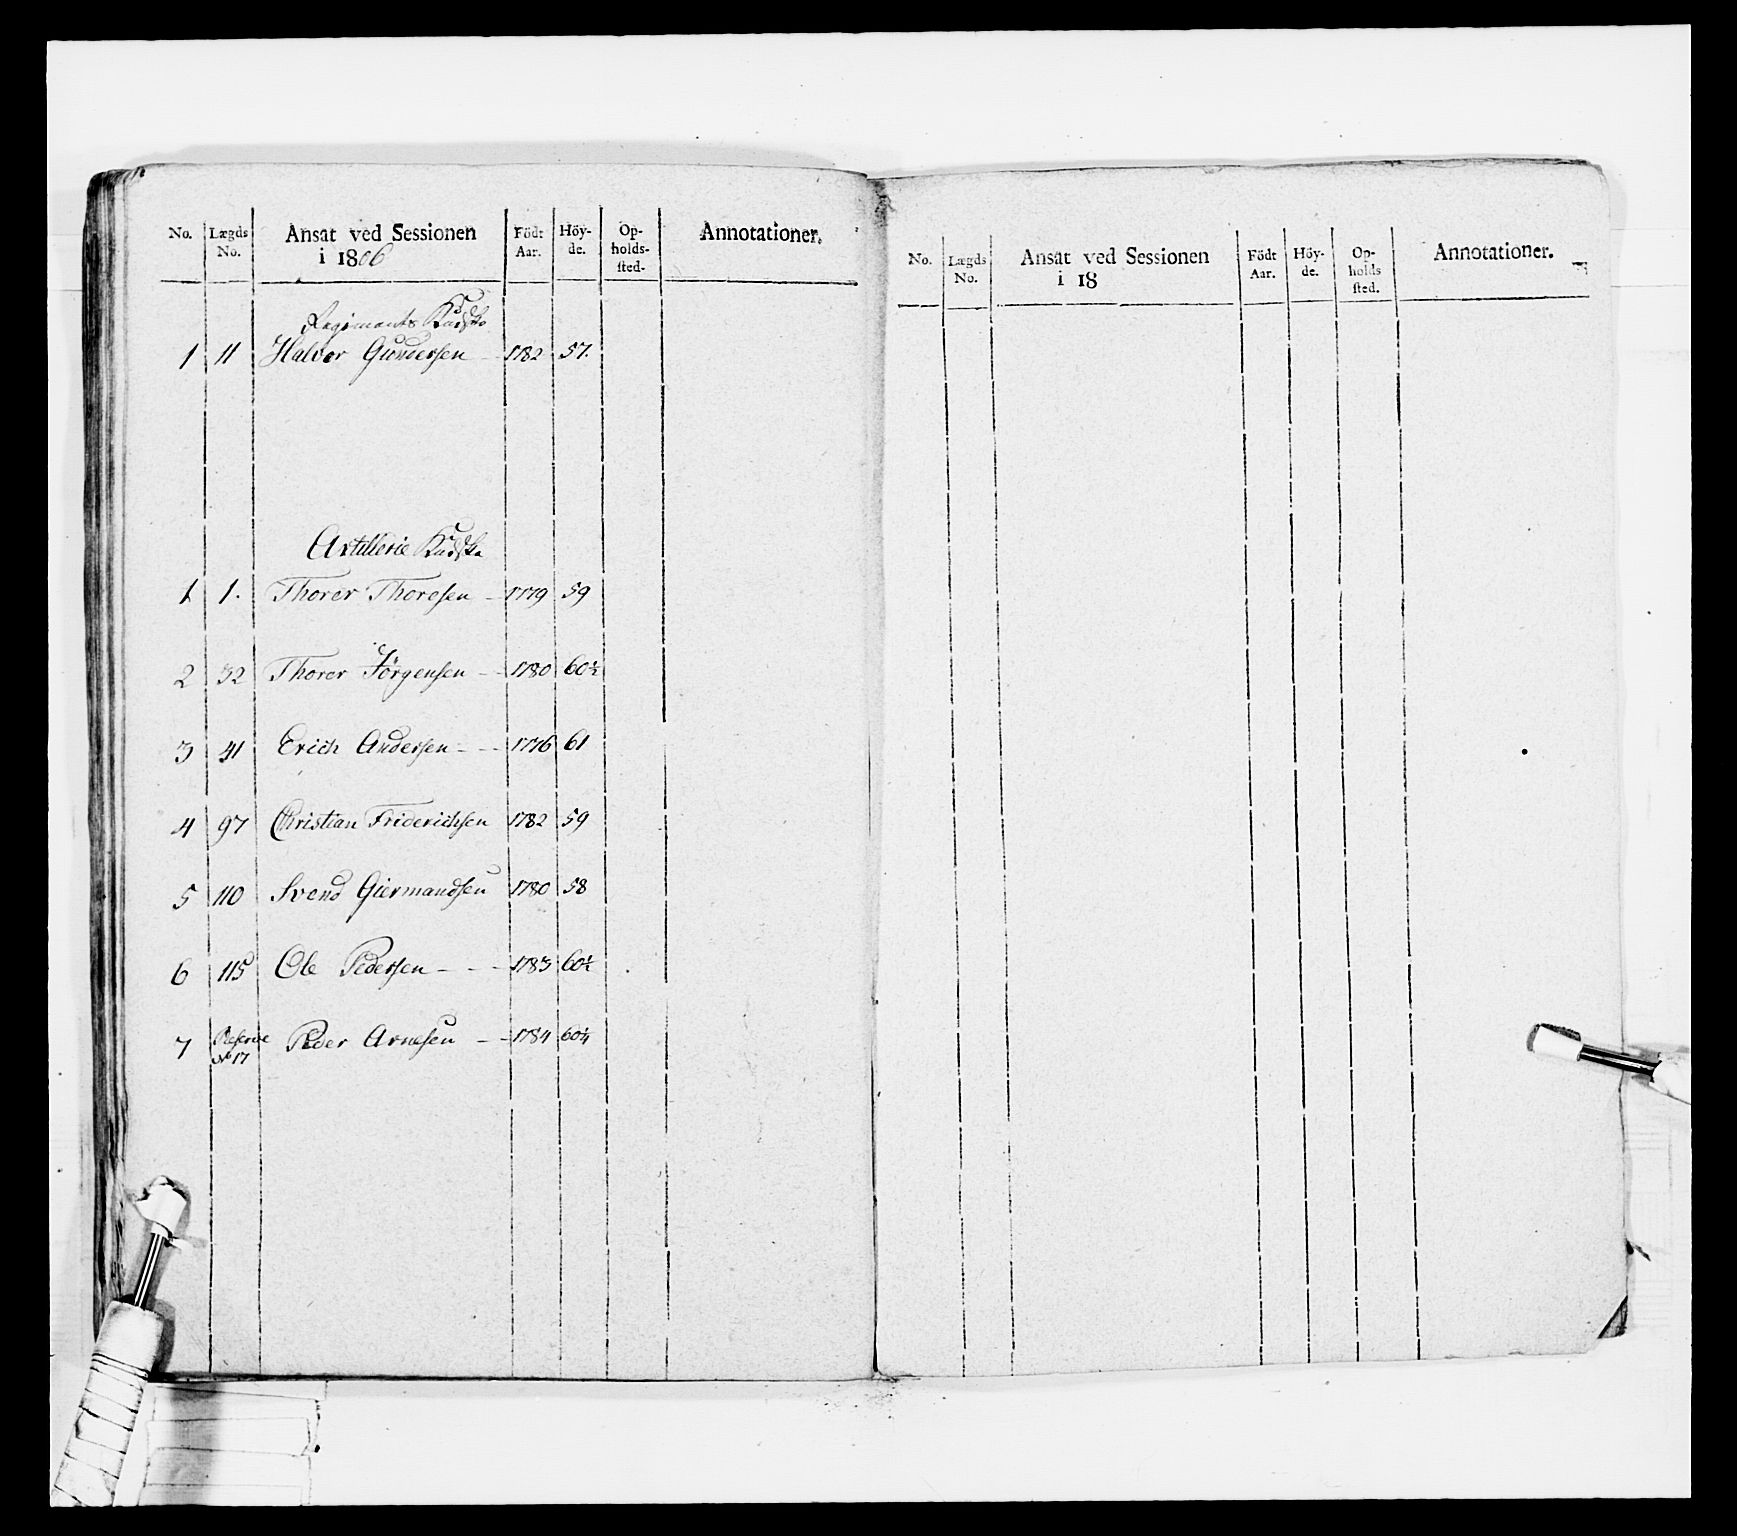 No. Lægds No. Ansat ved Sessionen i 1806 Födt Aar. Höy-de. Op-holds-sted. Annotationer.
Regiments Kudske
1 11 Halvor Gundersen - 1782 57.
Artillerie Kudske
1 1. Thorer Thoresen - 1779 59
2 32 Thorer Jörgensen - - 1780 60½
3 41 Erich Andersen - - - 1776 61
4 97 Christian Friderichsen 1782 59
5 110 Svend Giermandsen 1780 58
6 115 Ole Pedersen - - - 1783 60½
7 Reserve No 17 Peder Arnesen - - 1784 60¼
No. Lægds No. Ansat ved Sessionen i 18 Födt Aar. Höy-de. Op-holds sted. Annotationer.